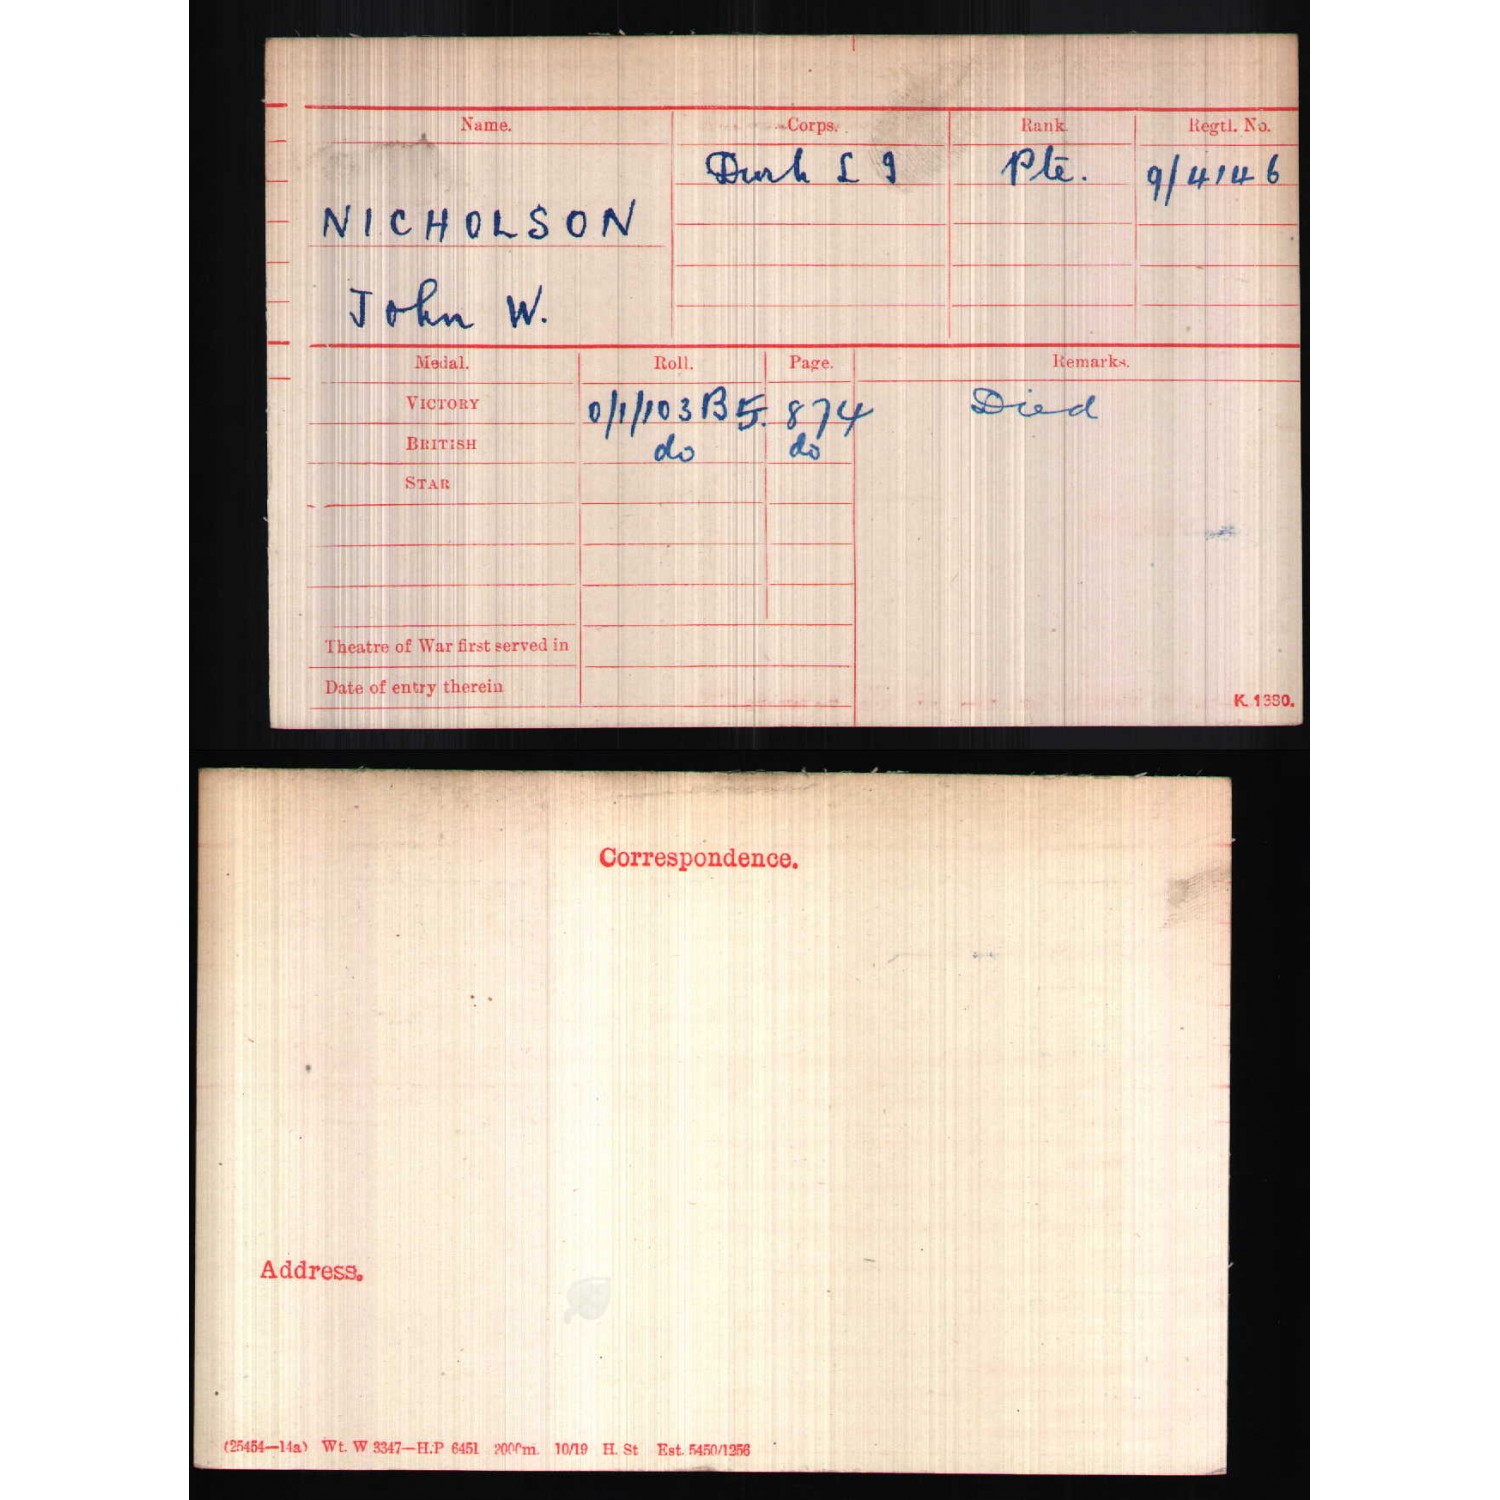 Name. Corps. Rank Regtl. No.
Durh L I Pte. 9/4146
NICHOLSON
John W.
Medal. Roll. Page. Remarks.
VICTORY 0/1/103 B5. 874 Died
BRITISH do do
STAR
Theatre of War first served in
Date of entry therein
K. 1380.
Correspondence.
Address.
(25454—14a) Wt. W 3347—H.P 6451 2000m. 10/19 H. St Est. 5450/1256